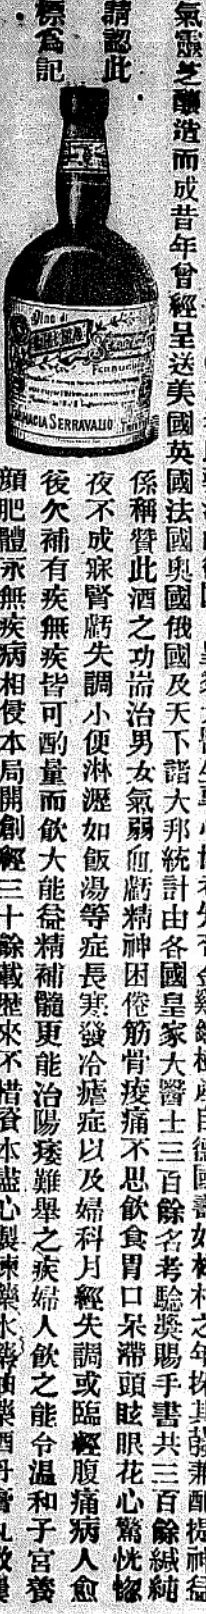 氣靈芝釀造而成昔年曾經呈送美國英國法國奧國俄國及天下諸大邦統計由各國皇家大醫士三百餘名考驗獎賜手書共三百餘緘純
係稱贊此酒之功耑治男女氣弱血虧精神困倦筋骨痠痛不思飲食胃口呆滯頭眩眼花心驚恍惚
夜不成寐腎虧失調小便淋瀝如飯湯等症長寒發冷瘧症以及婦科月經失調或臨經腹痛病人愈
後欠補有疾無疾皆可酌量而飲大能益精補髓更能治陽痿難舉之疾婦人飲之能令溫和子宮養
顏肥體永無疾病相侵本局開創經三十餘載歷來不惜資本盡心製煉藥水藥油藥酒丹膏丸散
請認此
標爲記
Vino di
CHINA
Ferruginoso
FARMACIA SERRAVALLO